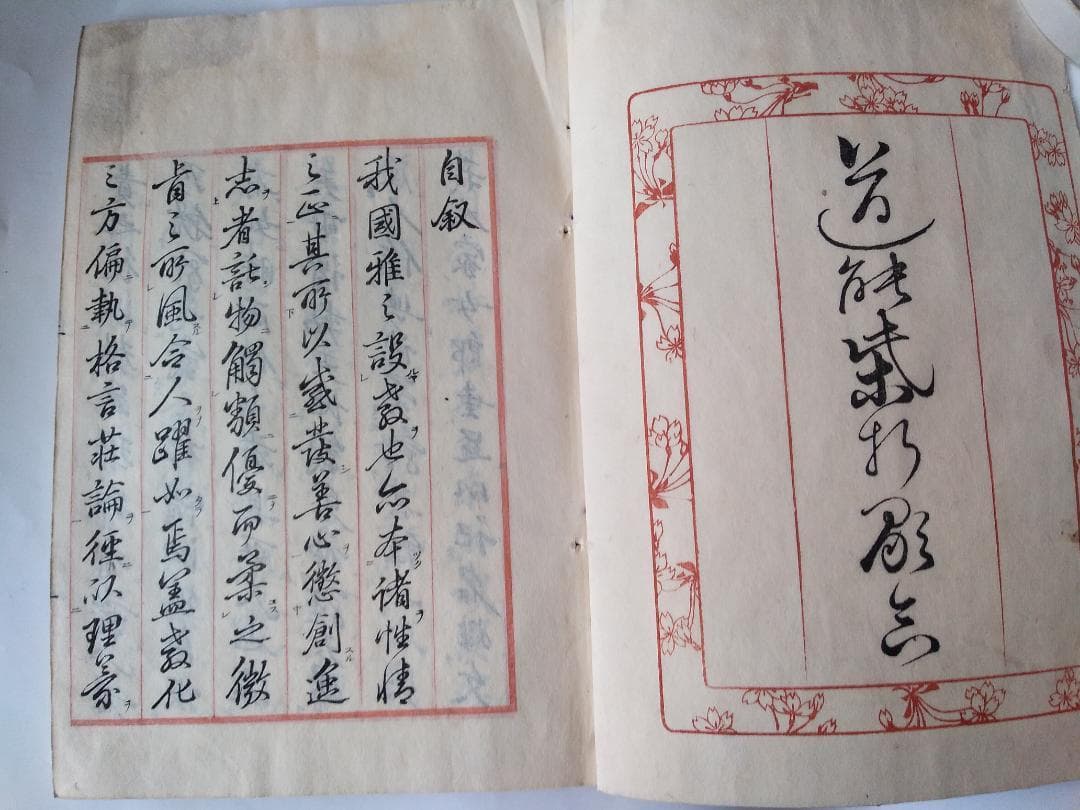 道能柴折
自叙
我國雅之設教也亦本諸性情
之正其所以感發善心懲創逸
志者託物觸類優而柔之微
之所風令人躍如焉蓋教化
之方偏執格言荘論徑以理義